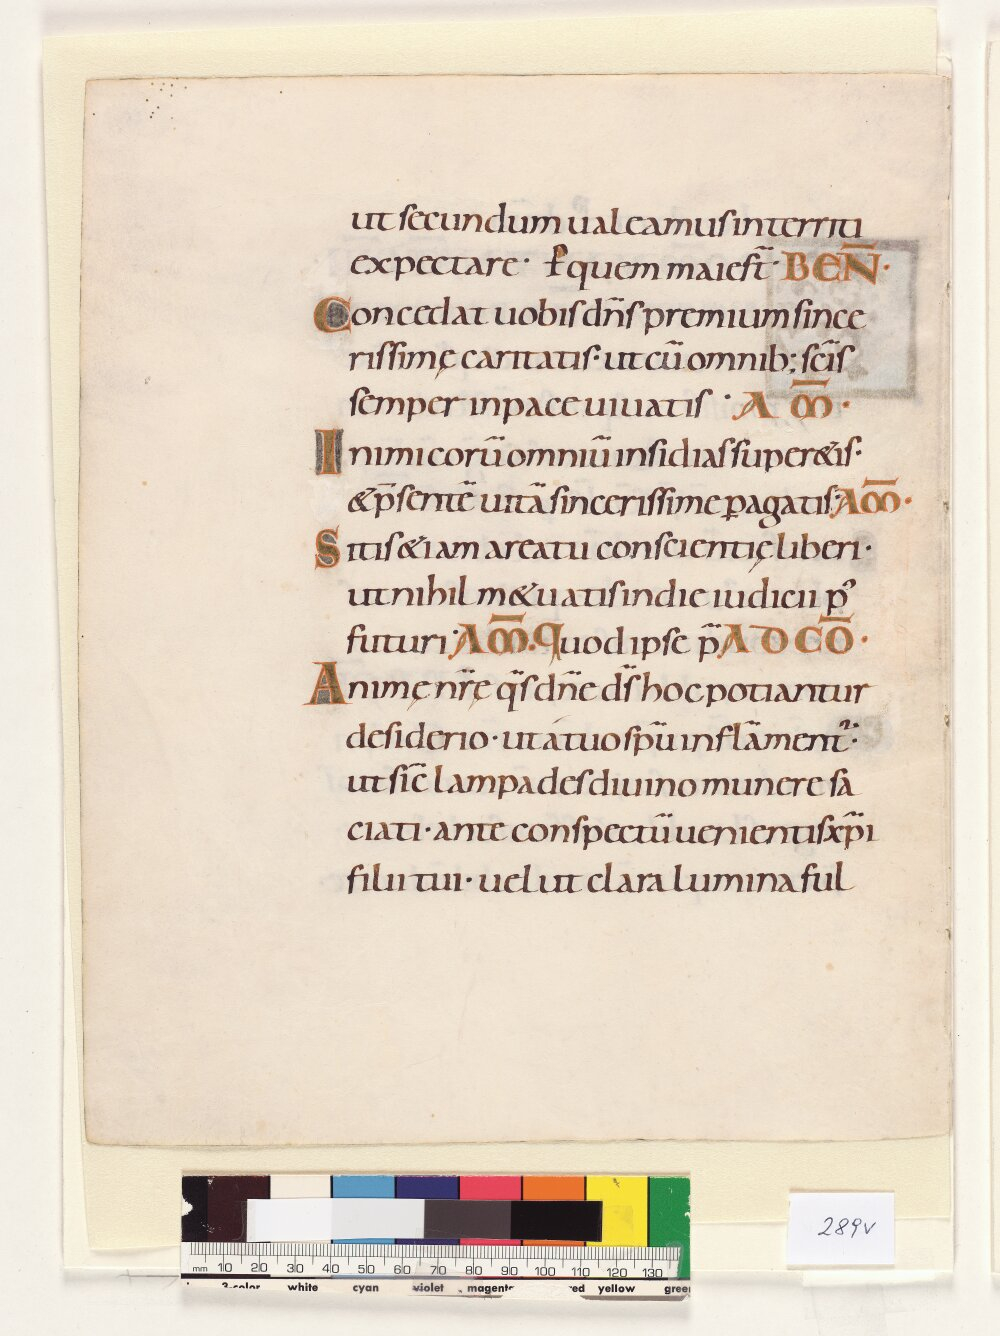 ut secundum ualeamus interriti
expectare· P̱ quem maiest̄· BEN̄·
Concedat uobis dn̄s premium since
rissimę caritatis· ut cū omnib; sc̄is
semper in pace uiuatis · A M̄·
Inimicorū omniū insidias super&is·
&p̄sentē uitā sincerissime ꝑagatis; AM̄·
Sitis &iam a reatu conscientię liberi·
ut nihil m&uatis in die iudicii p̉
futuri· AM̄· Quod ipse p̄ AD CŌ·
Animę nr̄ę q̄s dn̄e ds̄ hoc potiantur
desiderio· ut á tuo spū inflāment᷑·
ut sic̄ lampades diuino munere sa
ciati· ante conspectū uenientis xp̄i
filii tui· uelut clara lumina ful
289v
mm 10 20 30 40 50 60 70 80 90 100 110 120 130
3-color white cyan violet magenta red yellow green